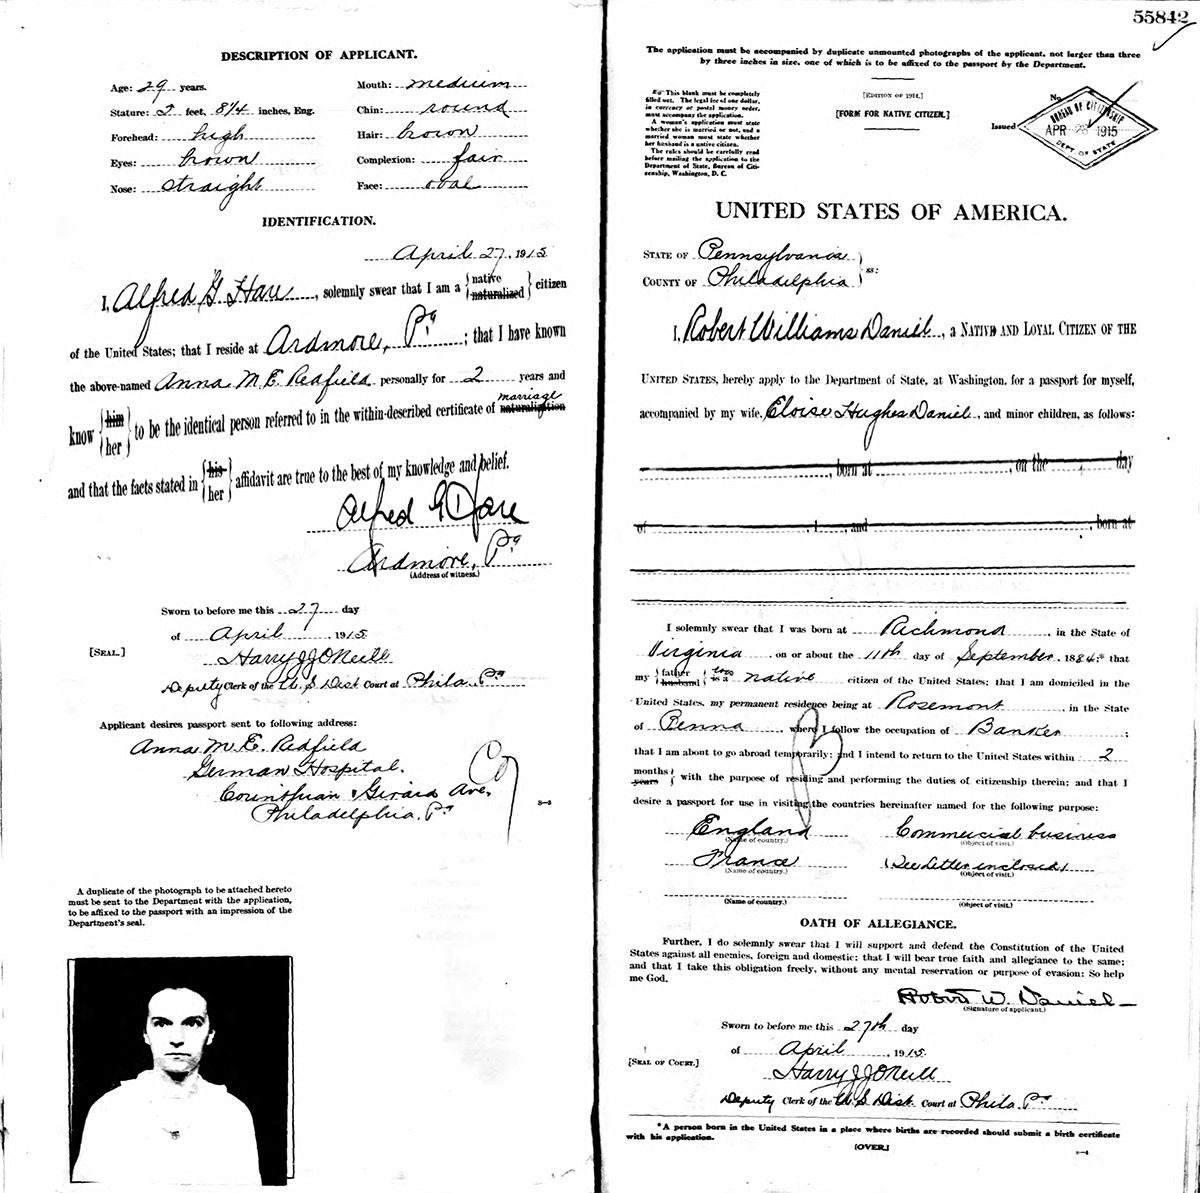 DESCRIPTION OF APPLICANT.
Age: 29 years.
Mouth: medium
Stature: 5 feet, 8 1/4 inches, Eng.
Chin: round
Forehead: high
Hair: brown
Eyes: brown
Complexion: fair
Nose: straight
Face: oval
IDENTIFICATION.
April 27, 1915.
I, Alfred G. Hare, solemnly swear that I am a { native naturalized } citizen
of the United States; that I reside at Ardmore, Pa; that I have known
the above-named Anna M. E. Redfield personally for 2 years and
marriage
know { him her } to be the identical person referred to in the within-described certificate of naturalization
and that the facts stated in { his her } affidavit are true to the best of my knowledge and belief.
Alfred G Hare
Ardmore, Pa
(Address of witness.)
Sworn to before me this 27 day
of April, 1915.
[SEAL.]
Harry J J O'Neill
Deputy Clerk of the U. S Dist Court at Phila. Pa
Applicant desires passport sent to following address:
Anna M. E. Redfield
German Hospital.
Corinthian & Girard Ave,
Philadelphia, Pa
A duplicate of the photograph to be attached hereto
must be sent to the Department with the application,
to be affixed to the passport with an impression of the
Department's seal.
55842
The application must be accompanied by duplicate unmounted photographs of the applicant, not larger than three
by three inches in size, one of which is to be affixed to the passport by the Department.
This blank must be completely
filled out. The legal fee of one dollar,
in currency or postal money order,
must accompany the application.
A woman's application must state
whether she is married or not, and a
married woman must state whether
her husband is a native citizen.
The rules should be carefully read
before mailing the application to the
Department of State, Bureau of Citi-
zenship, Washington, D. C.
[EDITION OF 1914.]
[FORM FOR NATIVE CITIZEN.]
No.
Issued
BUREAU OF CITIZENSHIP
APR 1915
DEPT OF STATE
UNITED STATES OF AMERICA.
STATE OF Pennsylvania
COUNTY OF Philadelphia } ss:
I, Robert Williams Daniel, a NATIVE AND LOYAL CITIZEN OF THE
UNITED STATES, hereby apply to the Department of State, at Washington, for a passport for myself,
accompanied by my wife, Eloise Hughes Daniel, and minor children, as follows:
, born at , on the day
of , 1 , and , born at
I solemnly swear that I was born at Richmond, in the State of
Virginia, on or about the 11th day of September, 1884;* that
my { father husband } { was is a } native citizen of the United States; that I am domiciled in the
United States, my permanent residence being at Rosemont, in the State
of Penna, where I follow the occupation of Banker;
that I am about to go abroad temporarily; and I intend to return to the United States within 2
{ months years } with the purpose of residing and performing the duties of citizenship therein; and that I
desire a passport for use in visiting the countries hereinafter named for the following purpose:
England Commercial business
(Name of country.) (Object of visit.)
France (See Letter enclosed)
(Name of country.) (Object of visit.)
(Name of country.) (Object of visit.)
OATH OF ALLEGIANCE.
Further, I do solemnly swear that I will support and defend the Constitution of the United
States against all enemies, foreign and domestic; that I will bear true faith and allegiance to the same;
and that I take this obligation freely, without any mental reservation or purpose of evasion: So help
me God.
Robert W. Daniel
(Signature of applicant.)
Sworn to before me this 27th day
of April, 1915.
[SEAL OF COURT.]
Harry J J O'Neill
Deputy Clerk of the U. S Dist. Court at Phila. Pa
*A person born in the United States in a place where births are recorded should submit a birth certificate
with his application.
[OVER.]